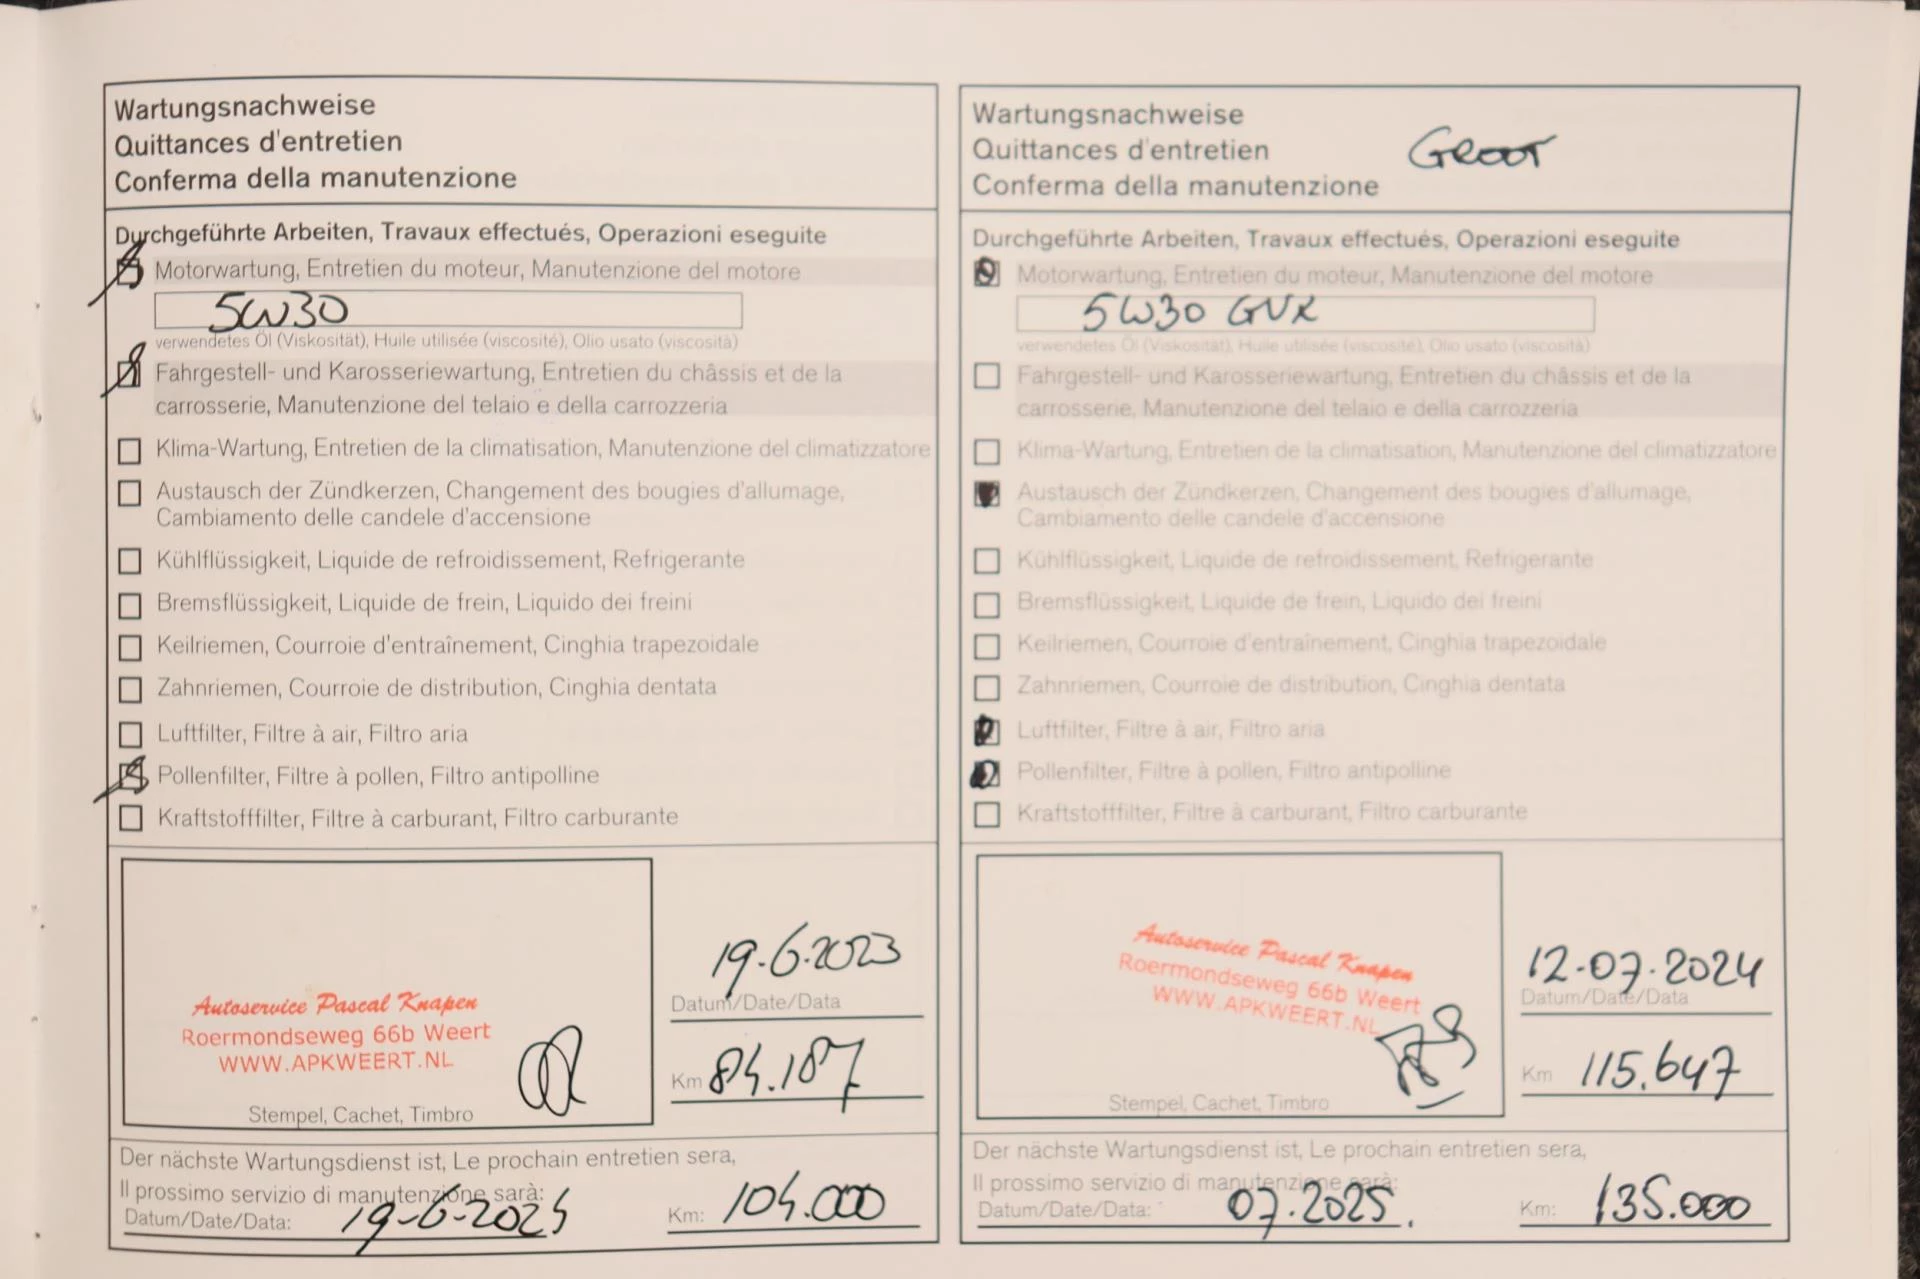 Wartungsnachweise
Quittances d'entretien
Conferma della manutenzione
Durchgeführte Arbeiten, Travaux effectués, Operazioni eseguite
Motorwartung, Entretien du moteur, Manutenzione del motore
5W30
verwendetes Öl (Viskosität), Huile utilisée (viscosité), Olio usato (viscosità)
Fahrgestell- und Karosseriewartung, Entretien du châssis et de la
carrosserie, Manutenzione del telaio e della carrozzeria
Klima-Wartung, Entretien de la climatisation, Manutenzione del climatizzatore
Austausch der Zündkerzen, Changement des bougies d'allumage,
Cambiamento delle candele d'accensione
Kühlflüssigkeit, Liquide de refroidissement, Refrigerante
Bremsflüssigkeit, Liquide de frein, Liquido dei freini
Keilriemen, Courroie d'entraînement, Cinghia trapezoidale
Zahnriemen, Courroie de distribution, Cinghia dentata
Luftfilter, Filtre à air, Filtro aria
Pollenfilter, Filtre à pollen, Filtro antipolline
Kraftstofffilter, Filtre à carburant, Filtro carburante
Autoservice Pascal Knapen
Roermondseweg 66b Weert
WWW.APKWEERT.NL
Stempel, Cachet, Timbro
19-6-2023
Datum/Date/Data
Km 84.187
Der nächste Wartungsdienst ist, Le prochain entretien sera,
Il prossimo servizio di manutenzione sarà:
Datum/Date/Data: 19-6-2024
Km: 104.000
Wartungsnachweise
Quittances d'entretien
Conferma della manutenzione
GROOT
Durchgeführte Arbeiten, Travaux effectués, Operazioni eseguite
Motorwartung, Entretien du moteur, Manutenzione del motore
5W30
verwendetes Öl (Viskosität), Huile utilisée (viscosité), Olio usato (viscosità)
Fahrgestell- und Karosseriewartung, Entretien du châssis et de la
carrosserie, Manutenzione del telaio e della carrozzeria
Klima-Wartung, Entretien de la climatisation, Manutenzione del climatizzatore
Austausch der Zündkerzen, Changement des bougies d'allumage,
Cambiamento delle candele d'accensione
Kühlflüssigkeit, Liquide de refroidissement, Refrigerante
Bremsflüssigkeit, Liquide de frein, Liquido dei freini
Keilriemen, Courroie d'entraînement, Cinghia trapezoidale
Zahnriemen, Courroie de distribution, Cinghia dentata
Luftfilter, Filtre à air, Filtro aria
Pollenfilter, Filtre à pollen, Filtro antipolline
Kraftstofffilter, Filtre à carburant, Filtro carburante
Autoservice Pascal Knapen
Roermondseweg 66b Weert
WWW.APKWEERT.NL
Stempel, Cachet, Timbro
12-07-2024
Datum/Date/Data
Km 115.647
Der nächste Wartungsdienst ist, Le prochain entretien sera,
Il prossimo servizio di manutenzione sarà:
Datum/Date/Data: 07.2025.
Km: 135.000